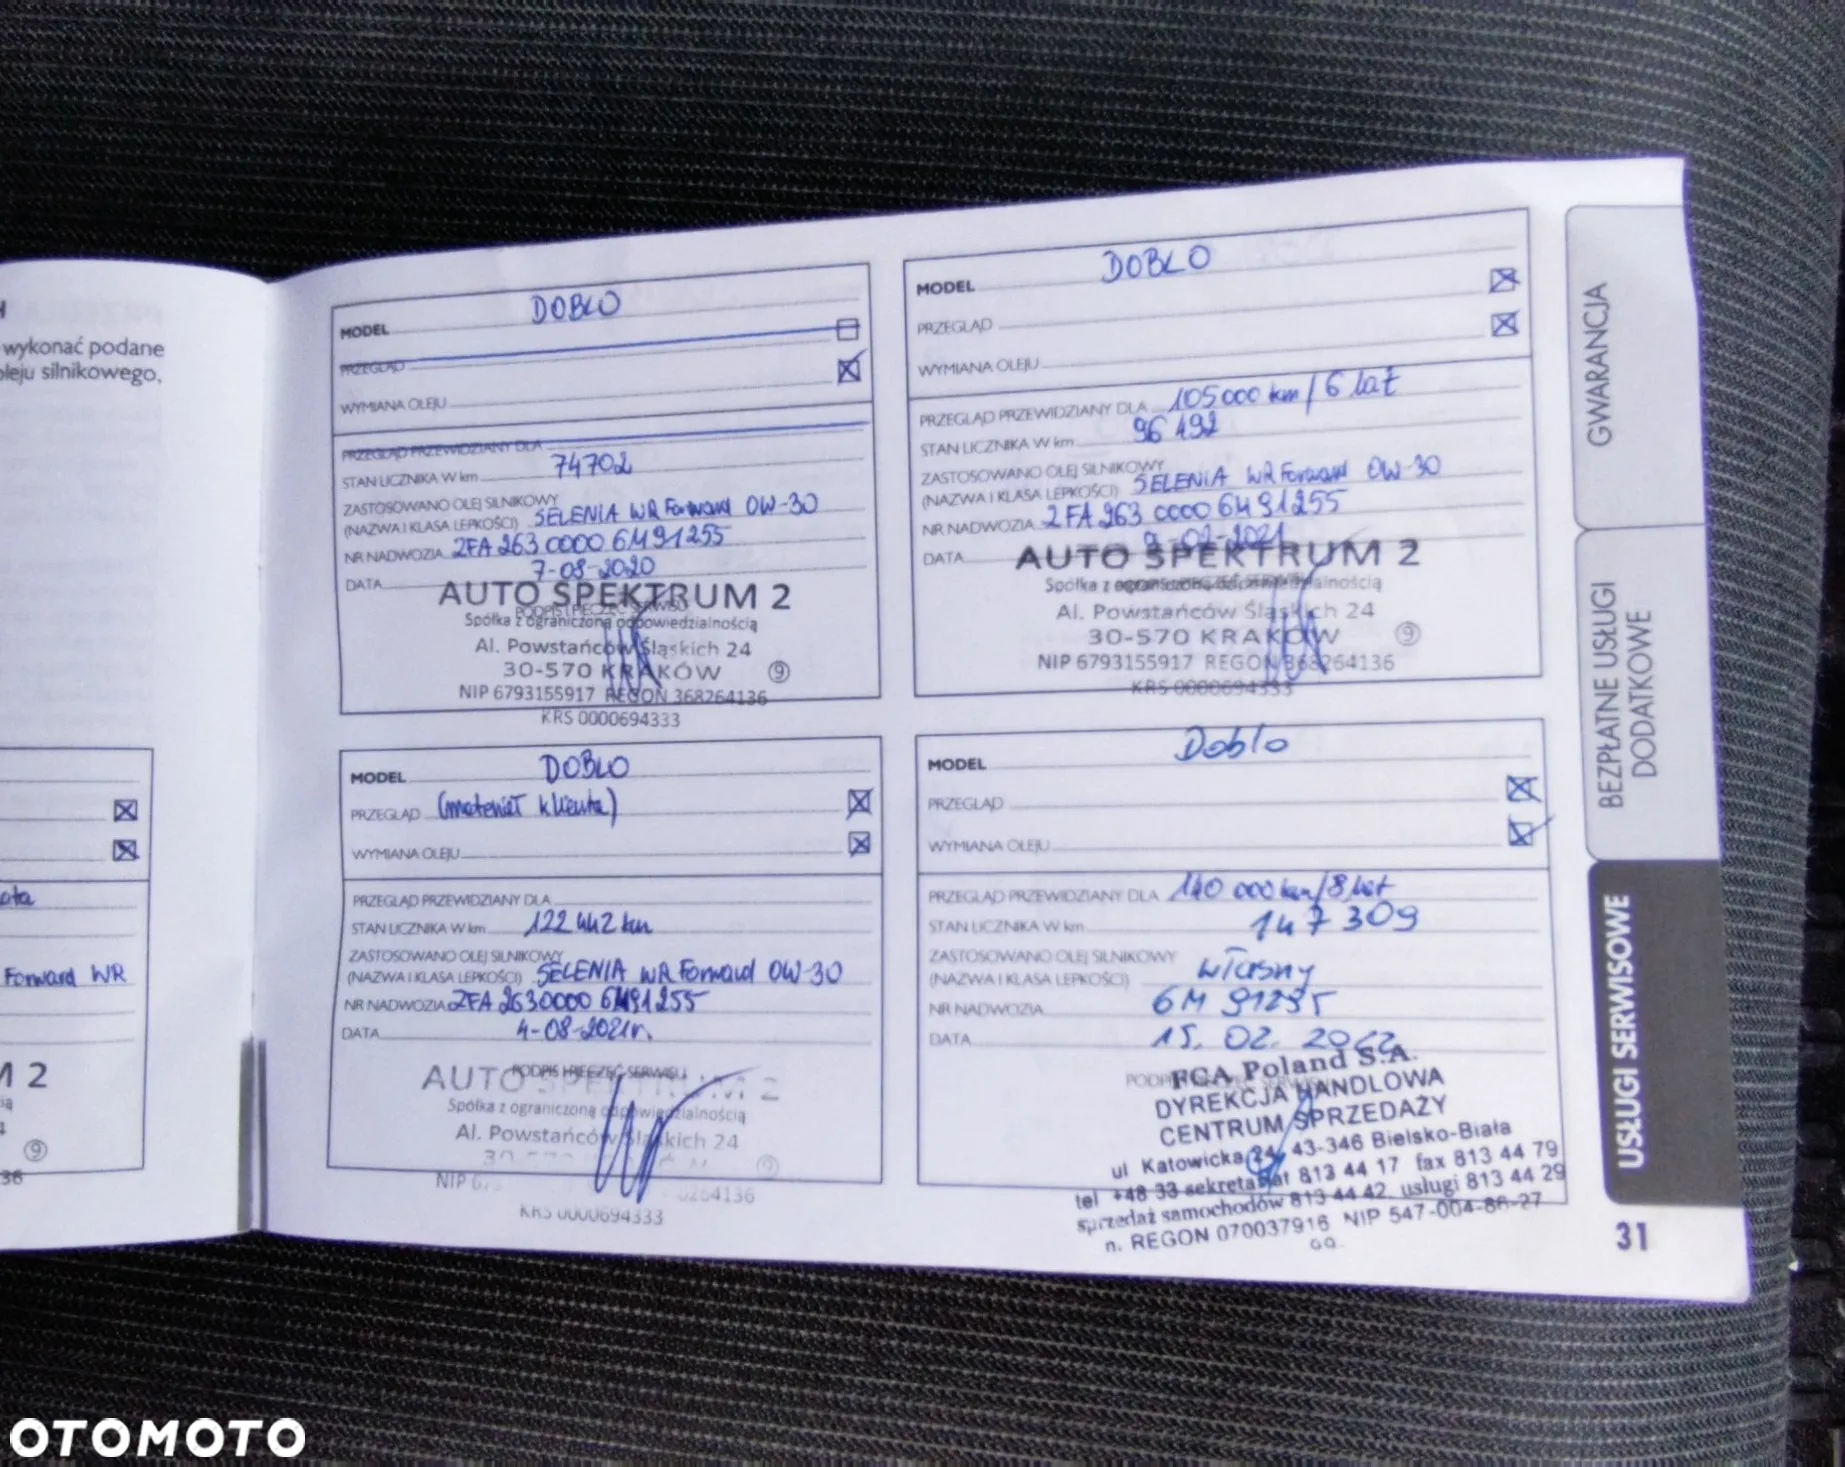 wykonać podane
oleju silnikowego,
ota
Forward WR
M 2
9
36
MODEL DOBLO
PRZEGLĄD
WYMIANA OLEJU
PRZEGLĄD PRZEWIDZIANY DLA
STAN LICZNIKA W km 74702
ZASTOSOWANO OLEJ SILNIKOWY
(NAZWA I KLASA LEPKOŚCI) SELENIA WR Forward 0W-30
NR NADWOZIA ZFA 263 0000 6M91255
DATA 7-08-2020
AUTO SPEKTRUM 2
PODPIS I PIECZĘĆ SERWISU
Spółka z ograniczoną odpowiedzialnością
Al. Powstańców Śląskich 24
30-570 KRAKÓW 9
NIP 6793155917 REGON 368264136
KRS 0000694333
MODEL DOBLO
PRZEGLĄD
WYMIANA OLEJU
PRZEGLĄD PRZEWIDZIANY DLA 105000 km / 6 lat
STAN LICZNIKA W km 96 492
ZASTOSOWANO OLEJ SILNIKOWY
(NAZWA I KLASA LEPKOŚCI) SELENIA WR Forward 0W-30
NR NADWOZIA ZFA 263 0000 6M91255
DATA 9-02-2021
AUTO SPEKTRUM 2
Spółka z ograniczoną odpowiedzialnością
Al. Powstańców Śląskich 24
30-570 KRAKÓW 9
NIP 6793155917 REGON 368264136
KRS 0000694333
MODEL DOBLO
PRZEGLĄD (materiał klienta)
WYMIANA OLEJU
PRZEGLĄD PRZEWIDZIANY DLA
STAN LICZNIKA W km 122 442 km
ZASTOSOWANO OLEJ SILNIKOWY
(NAZWA I KLASA LEPKOŚCI) SELENIA WR Forward 0W-30
NR NADWOZIA ZFA 2630000 6M91255
DATA 4-08-2021r.
PODPIS I PIECZĘĆ SERWISU
AUTO SPEKTRUM 2
Spółka z ograniczoną odpowiedzialnością
Al. Powstańców Śląskich 24
KRS 0000694333
MODEL Doblo
PRZEGLĄD
WYMIANA OLEJU
PRZEGLĄD PRZEWIDZIANY DLA 140 000 km/8 lat
STAN LICZNIKA W km 147 309
ZASTOSOWANO OLEJ SILNIKOWY
(NAZWA I KLASA LEPKOŚCI) własny
NR NADWOZIA 6M 91255
DATA 15. 02. 2022
FCA Poland S.A.
DYREKCJA HANDLOWA
CENTRUM SPRZEDAŻY
ul Katowicka 24, 43-346 Bielsko-Biała
tel +48 33 sekretariat 813 44 17 fax 813 44 79
sprzedaż samochodów 813 44 42, usługi 813 44 29
n. REGON 070037916 NIP 547-004-86-27
GWARANCJA
BEZPŁATNE USŁUGI
DODATKOWE
USŁUGI SERWISOWE
31
OTOMOTO